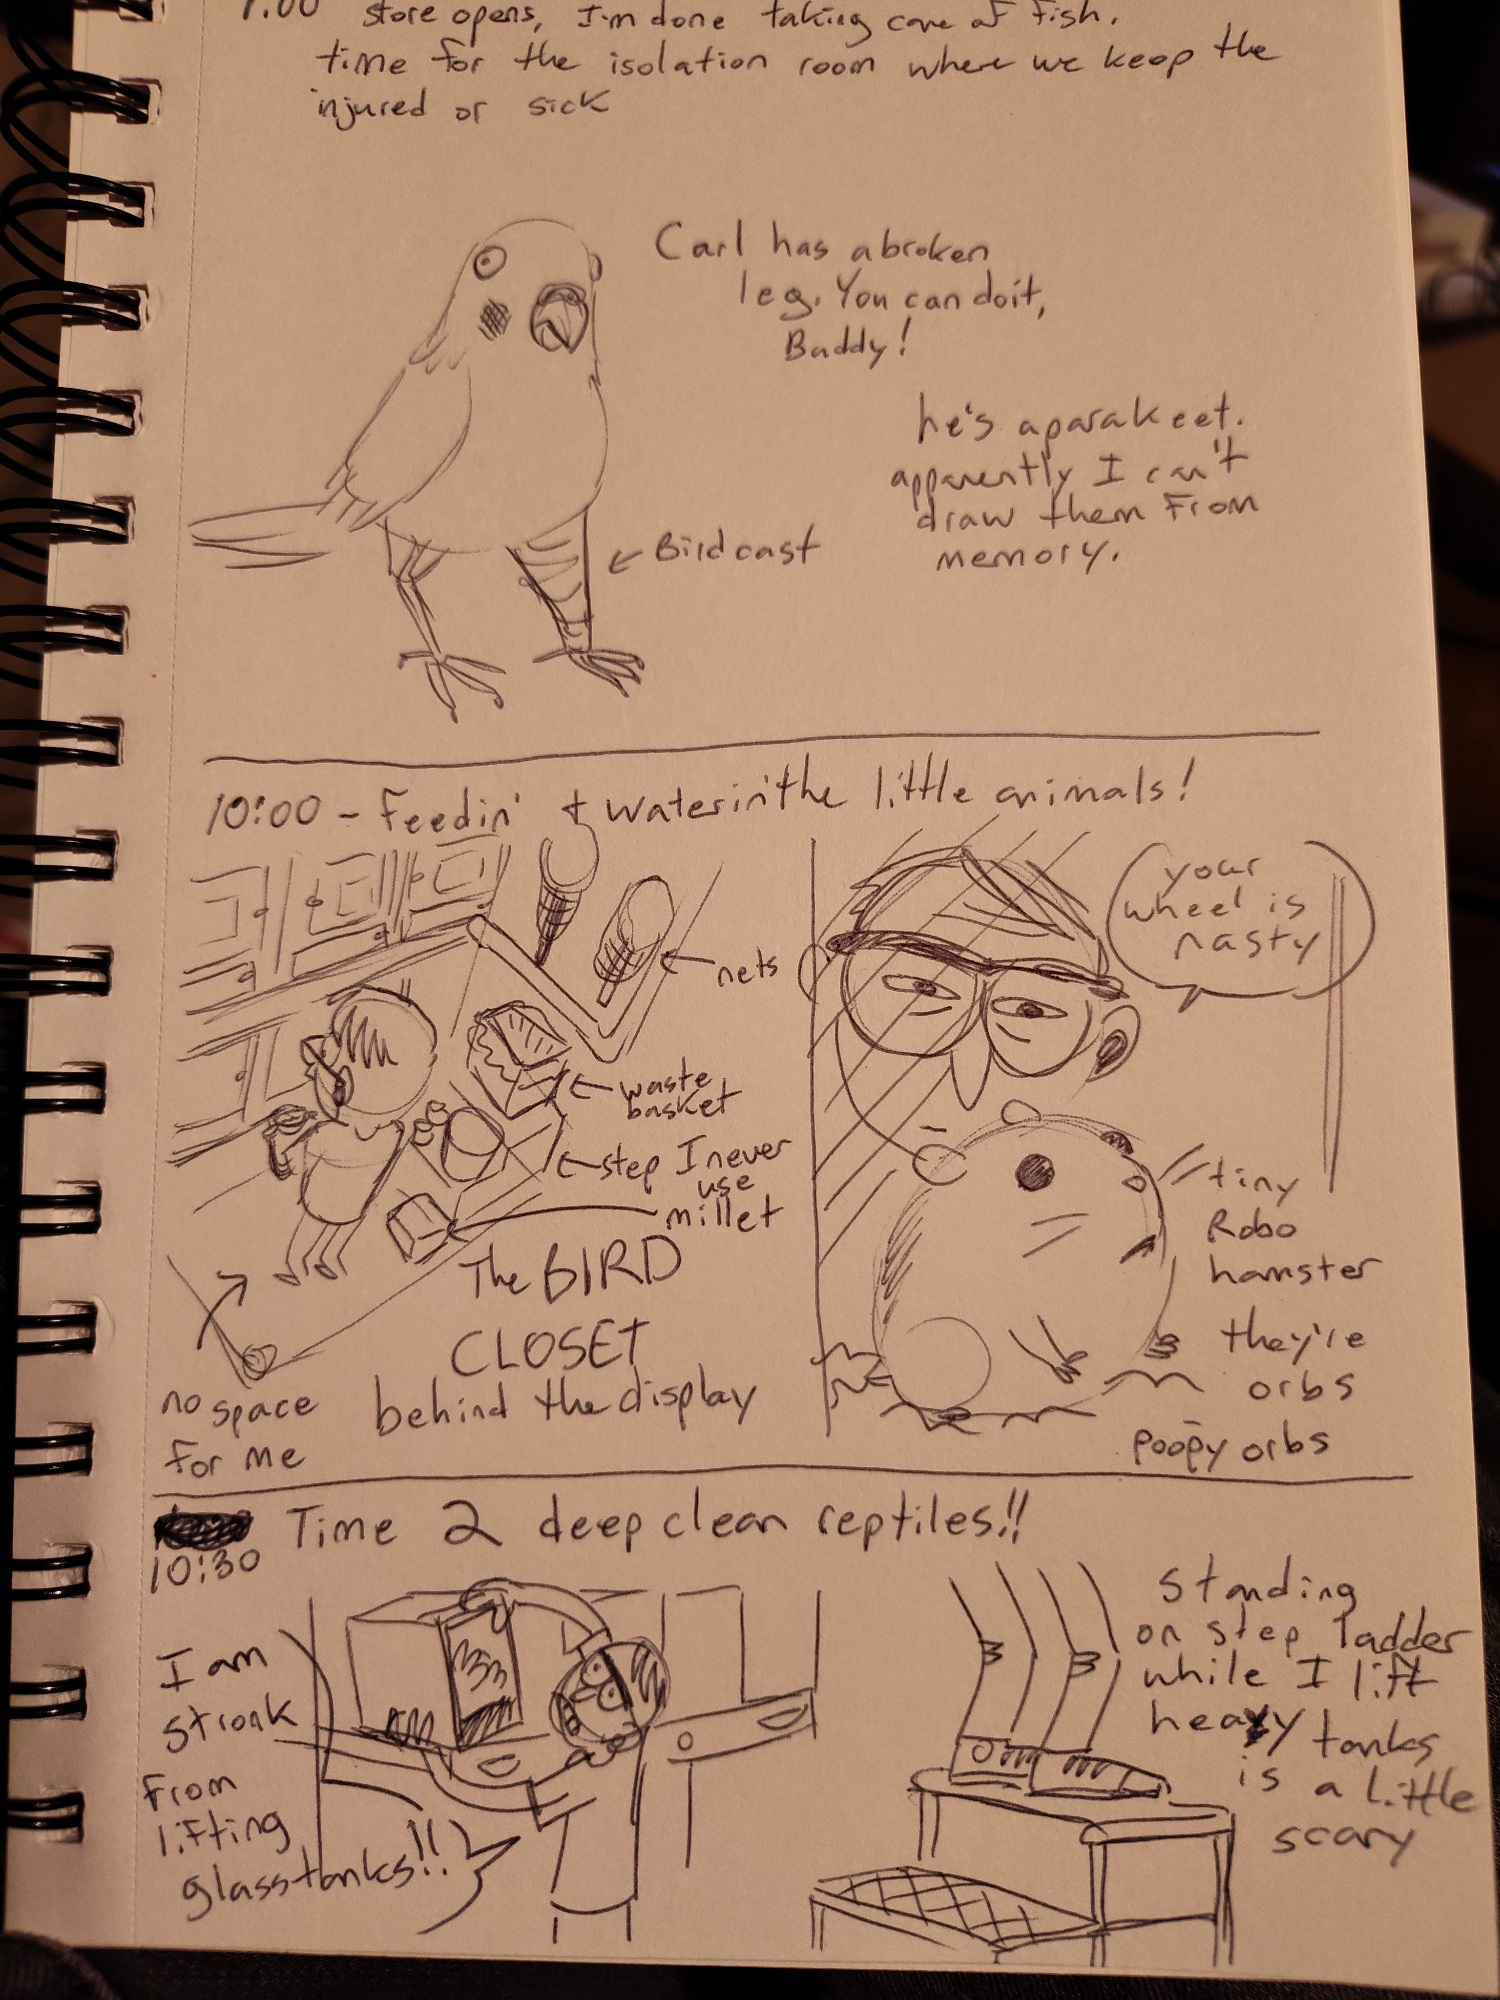 :00 store opens, I'm done taking care of fish.
time for the isolation room where we keep the
injured or sick
Carl has a broken
leg. You can do it,
Buddy!
he's a parakeet.
apparently I can't
draw them from
memory.
← Bird cast
10:00 - Feedin' + Waterin' the little animals!
nets
waste
basket
step I never
use
millet
The BIRD
CLOSET
behind the display
no space
for me
your
wheel is
nasty
tiny
Robo
hamster
they're
orbs
poopy orbs
10:30 Time 2 deep clean reptiles!!
I am
stronk
from
lifting
glass tanks!!
Standing
on step ladder
while I lift
heavy tanks
is a little
scary